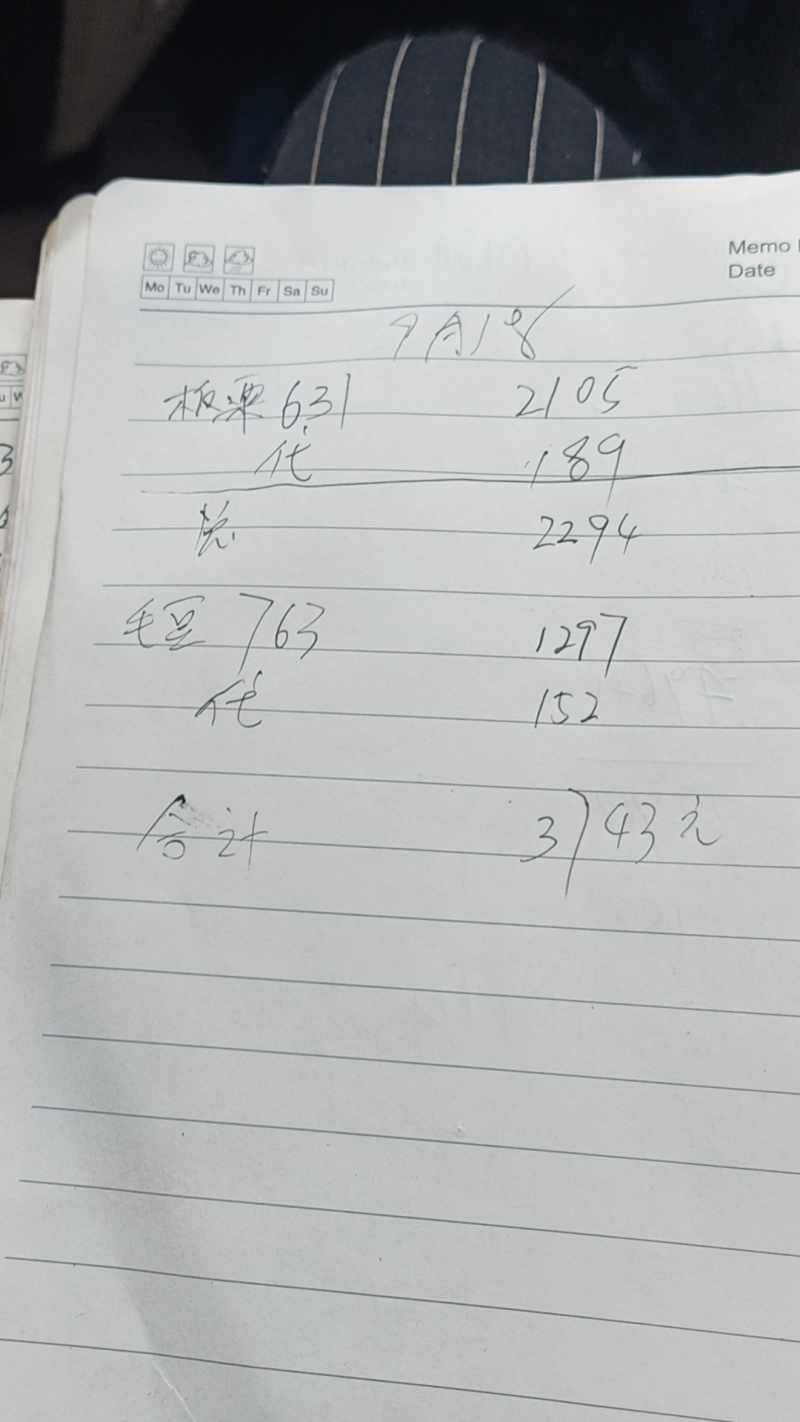 Memo
Date
Mo Tu We Th Fr Sa Su
9月18
板栗631 2105
代 189
总 2294
毛豆 763 1297
代 152
合计 3743元